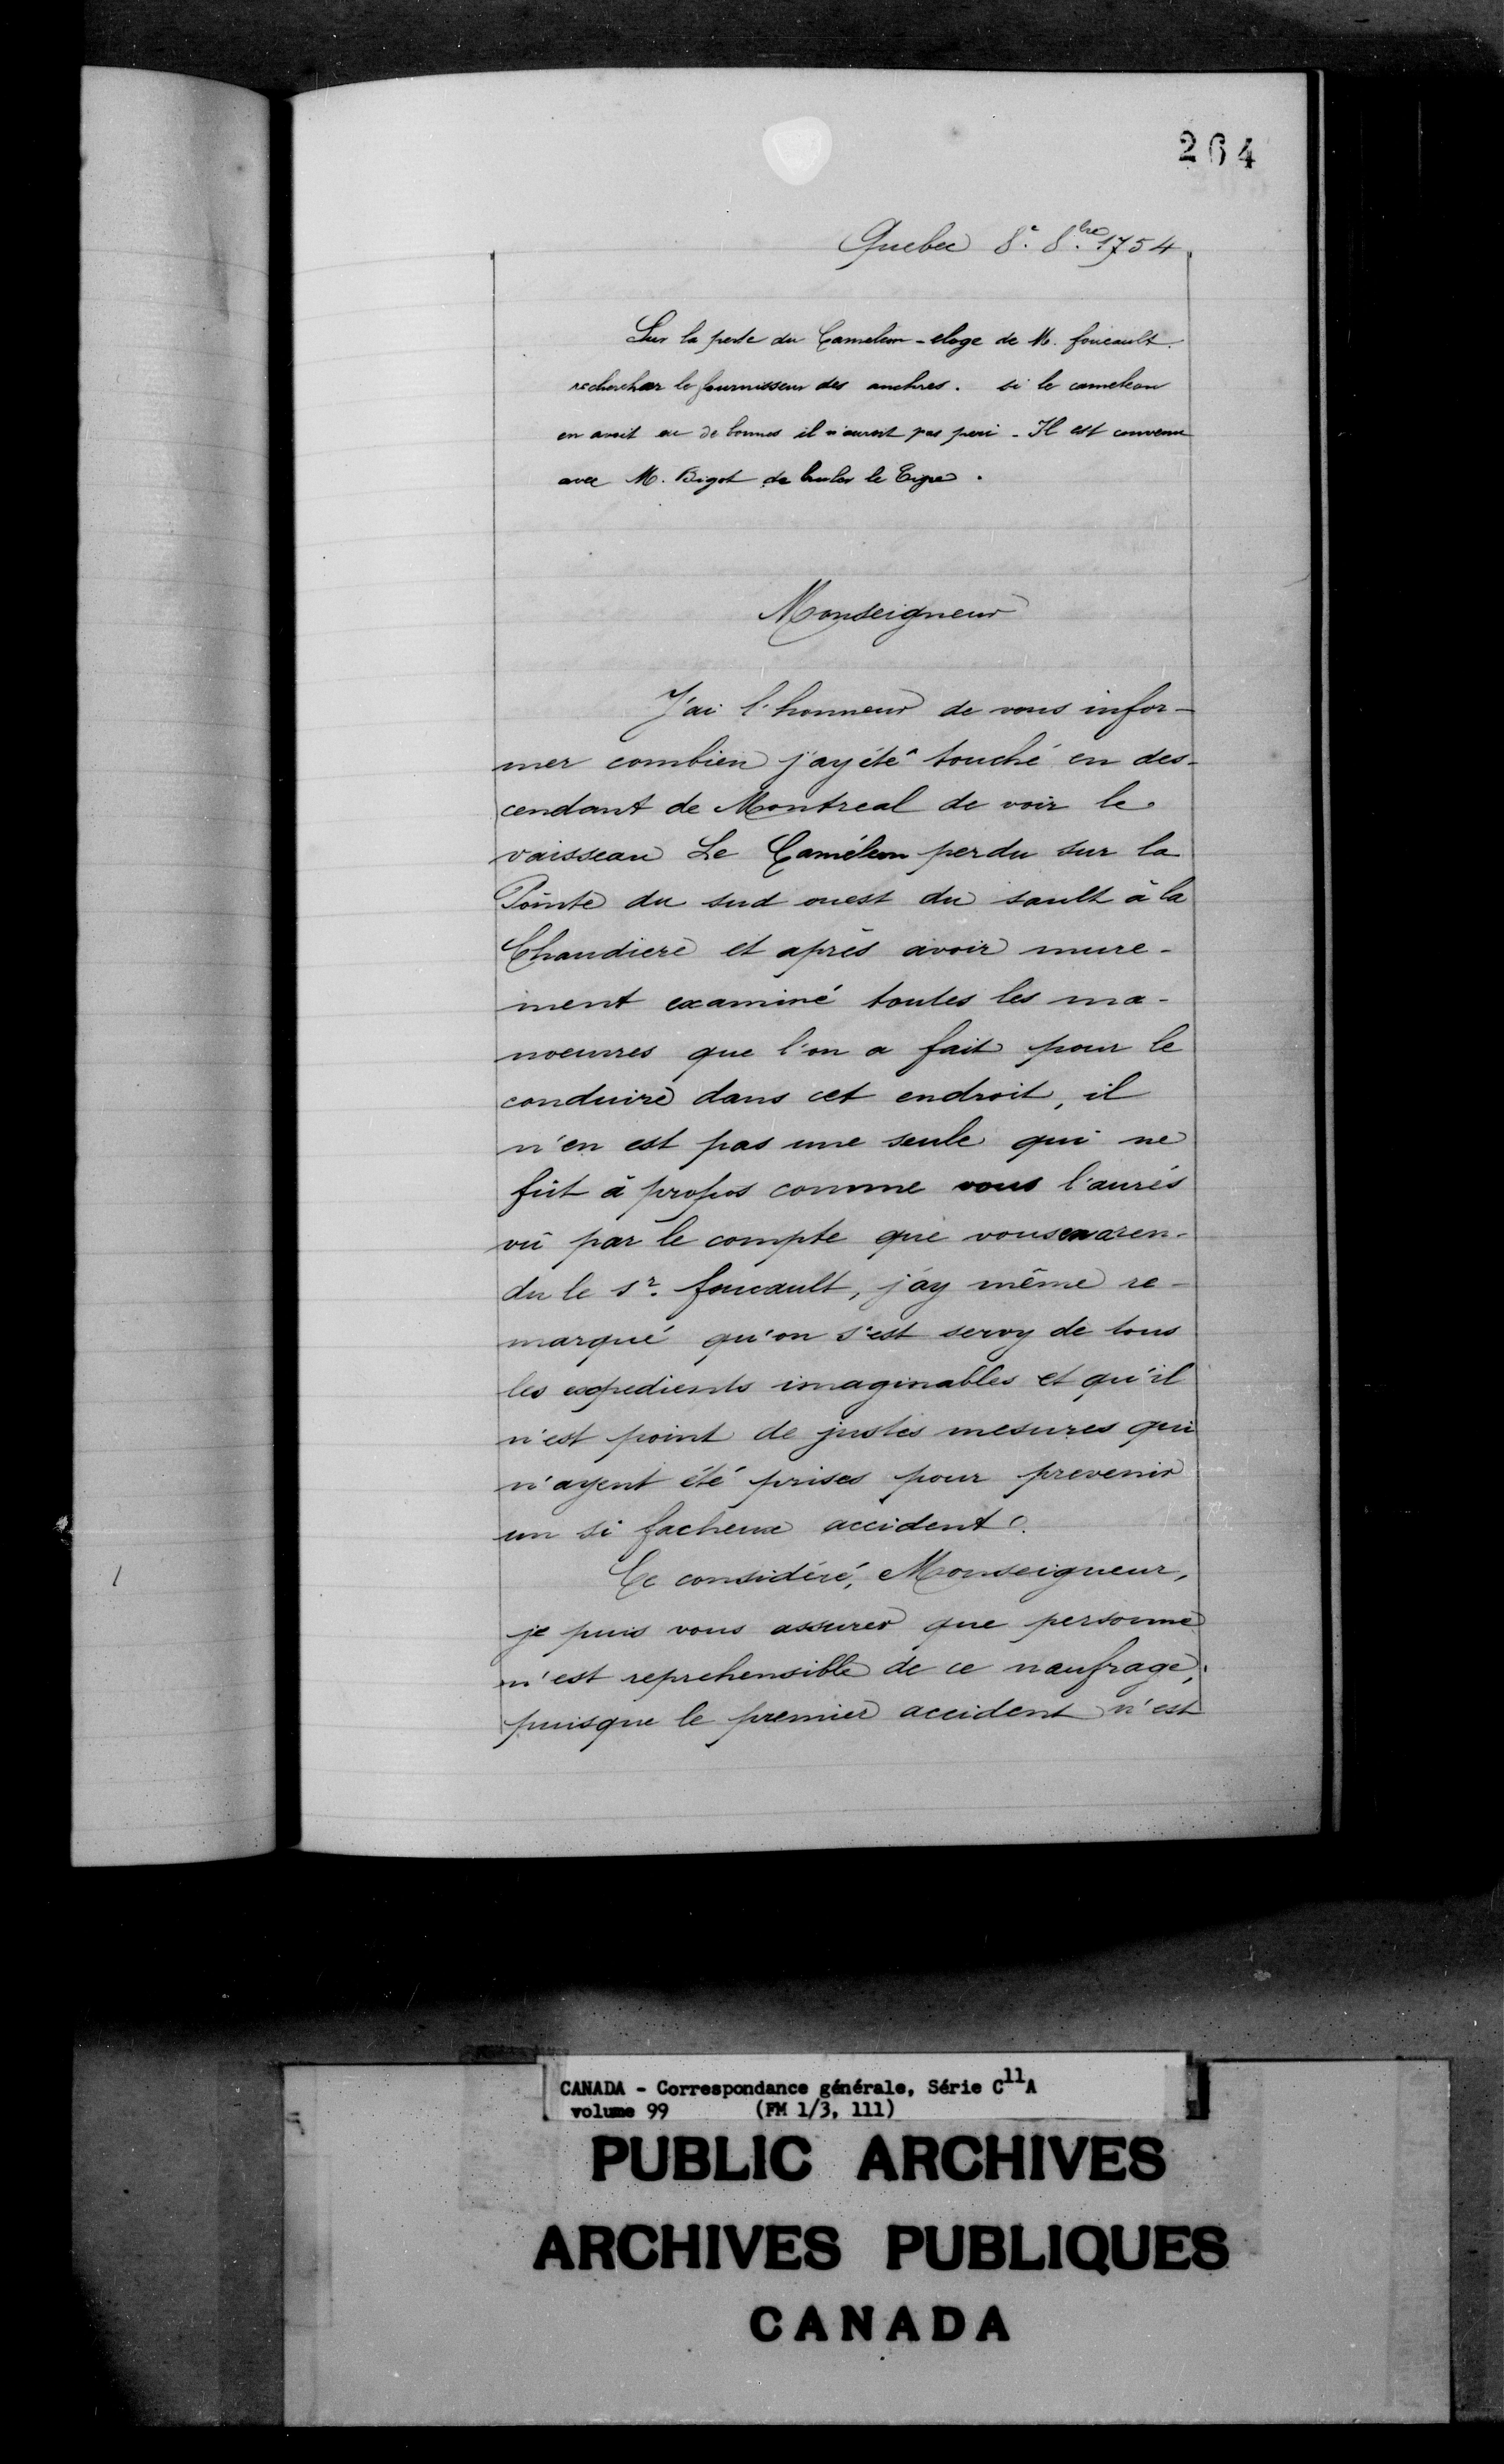 264
Quebec 8.e 8.bre 1754
Sur la perte du Cameleon - eloge de M. foucault.
rechercher le fournisseur des anchres. si le cameleon
en avoit eu de bonnes il n'auroit pas peri - Il est convenu
avec M. Bigot de bruler le Tigre.
Monseigneur
J'ai l'honneur de vous infor-
mer combien j'ay été touché en des-
cendant de Montreal de voir le
vaisseau Le Caméleon perdu sur la
Pointe du sud ouest du sault à la
Chaudiere et après avoir mure-
ment examiné toutes les ma-
noeuvres que l'on a fait pour le
conduire dans cet endroit, il
n'en est pas une seule qui ne
fût à propos comme vous l'aurés
vû par le compte que vous en a ren-
du le Sr. foucault, j'ay même re-
marqué qu'on s'est servy de tous
les expedients imaginables et qu'il
n'est point de justes mesures qui
n'ayent été prises pour prevenir
un si facheux accident.
Ce considéré, Monseigneur,
je puis vous assurer que personne
n'est reprehensible de ce naufrage,
puisque le premier accident n'est
CANADA - Correspondance générale, Série C11A
volume 99 (FM 1/3, 111)
PUBLIC ARCHIVES
ARCHIVES PUBLIQUES
CANADA